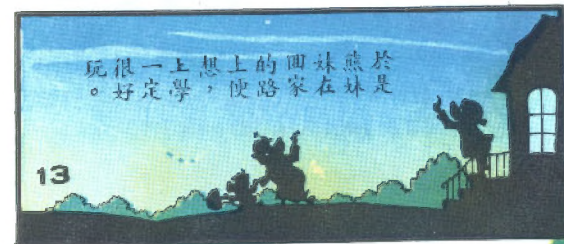 於是
熊妹
妹在
回家
的路
上便
想，
上學
一定
很好
玩。
13